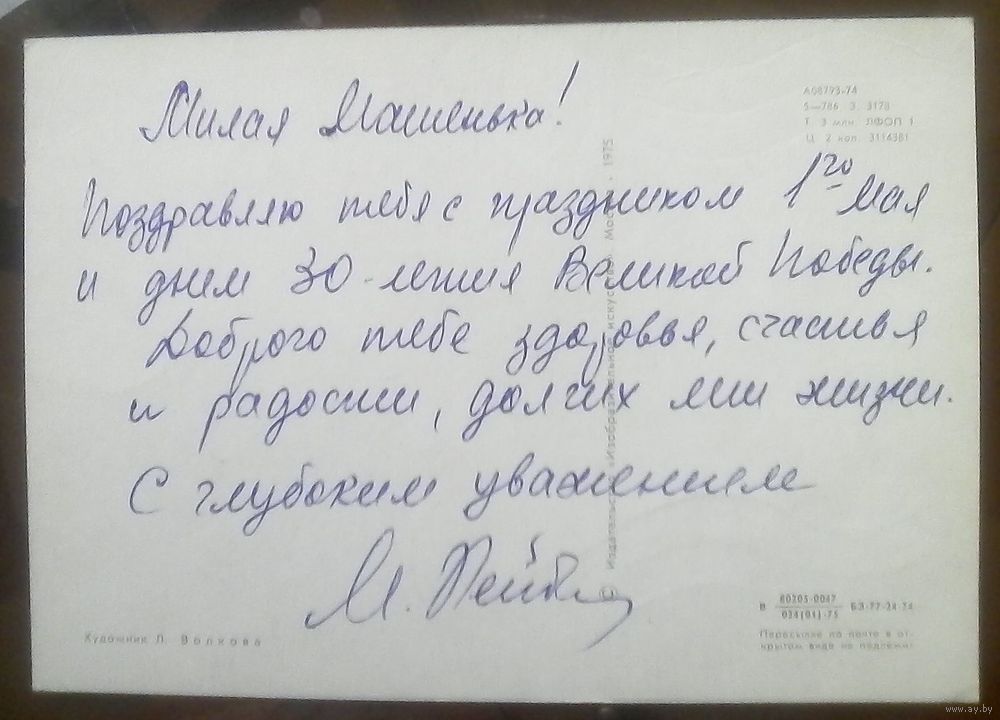 Милая Машенька!
Поздравляю тебя с праздником 1го Мая
и днем 30-летия Великой Победы.
Доброго тебе здоровья, счастья
и радости, долгих лет жизни.
С глубоким уважением
М.
А08793-74
5—786 З. 3178
Т. 3 млн. ЛФОП 1
Ц. 2 коп. 3114381
© Издательство «Изобразительное искусство». Москва. 1975
Художник Л. Волкова
В 80205-0047
024(01)-75 БЗ-77-24-74
Пересылке по почте в от-
крытом виде не подлежит
www.ay.by